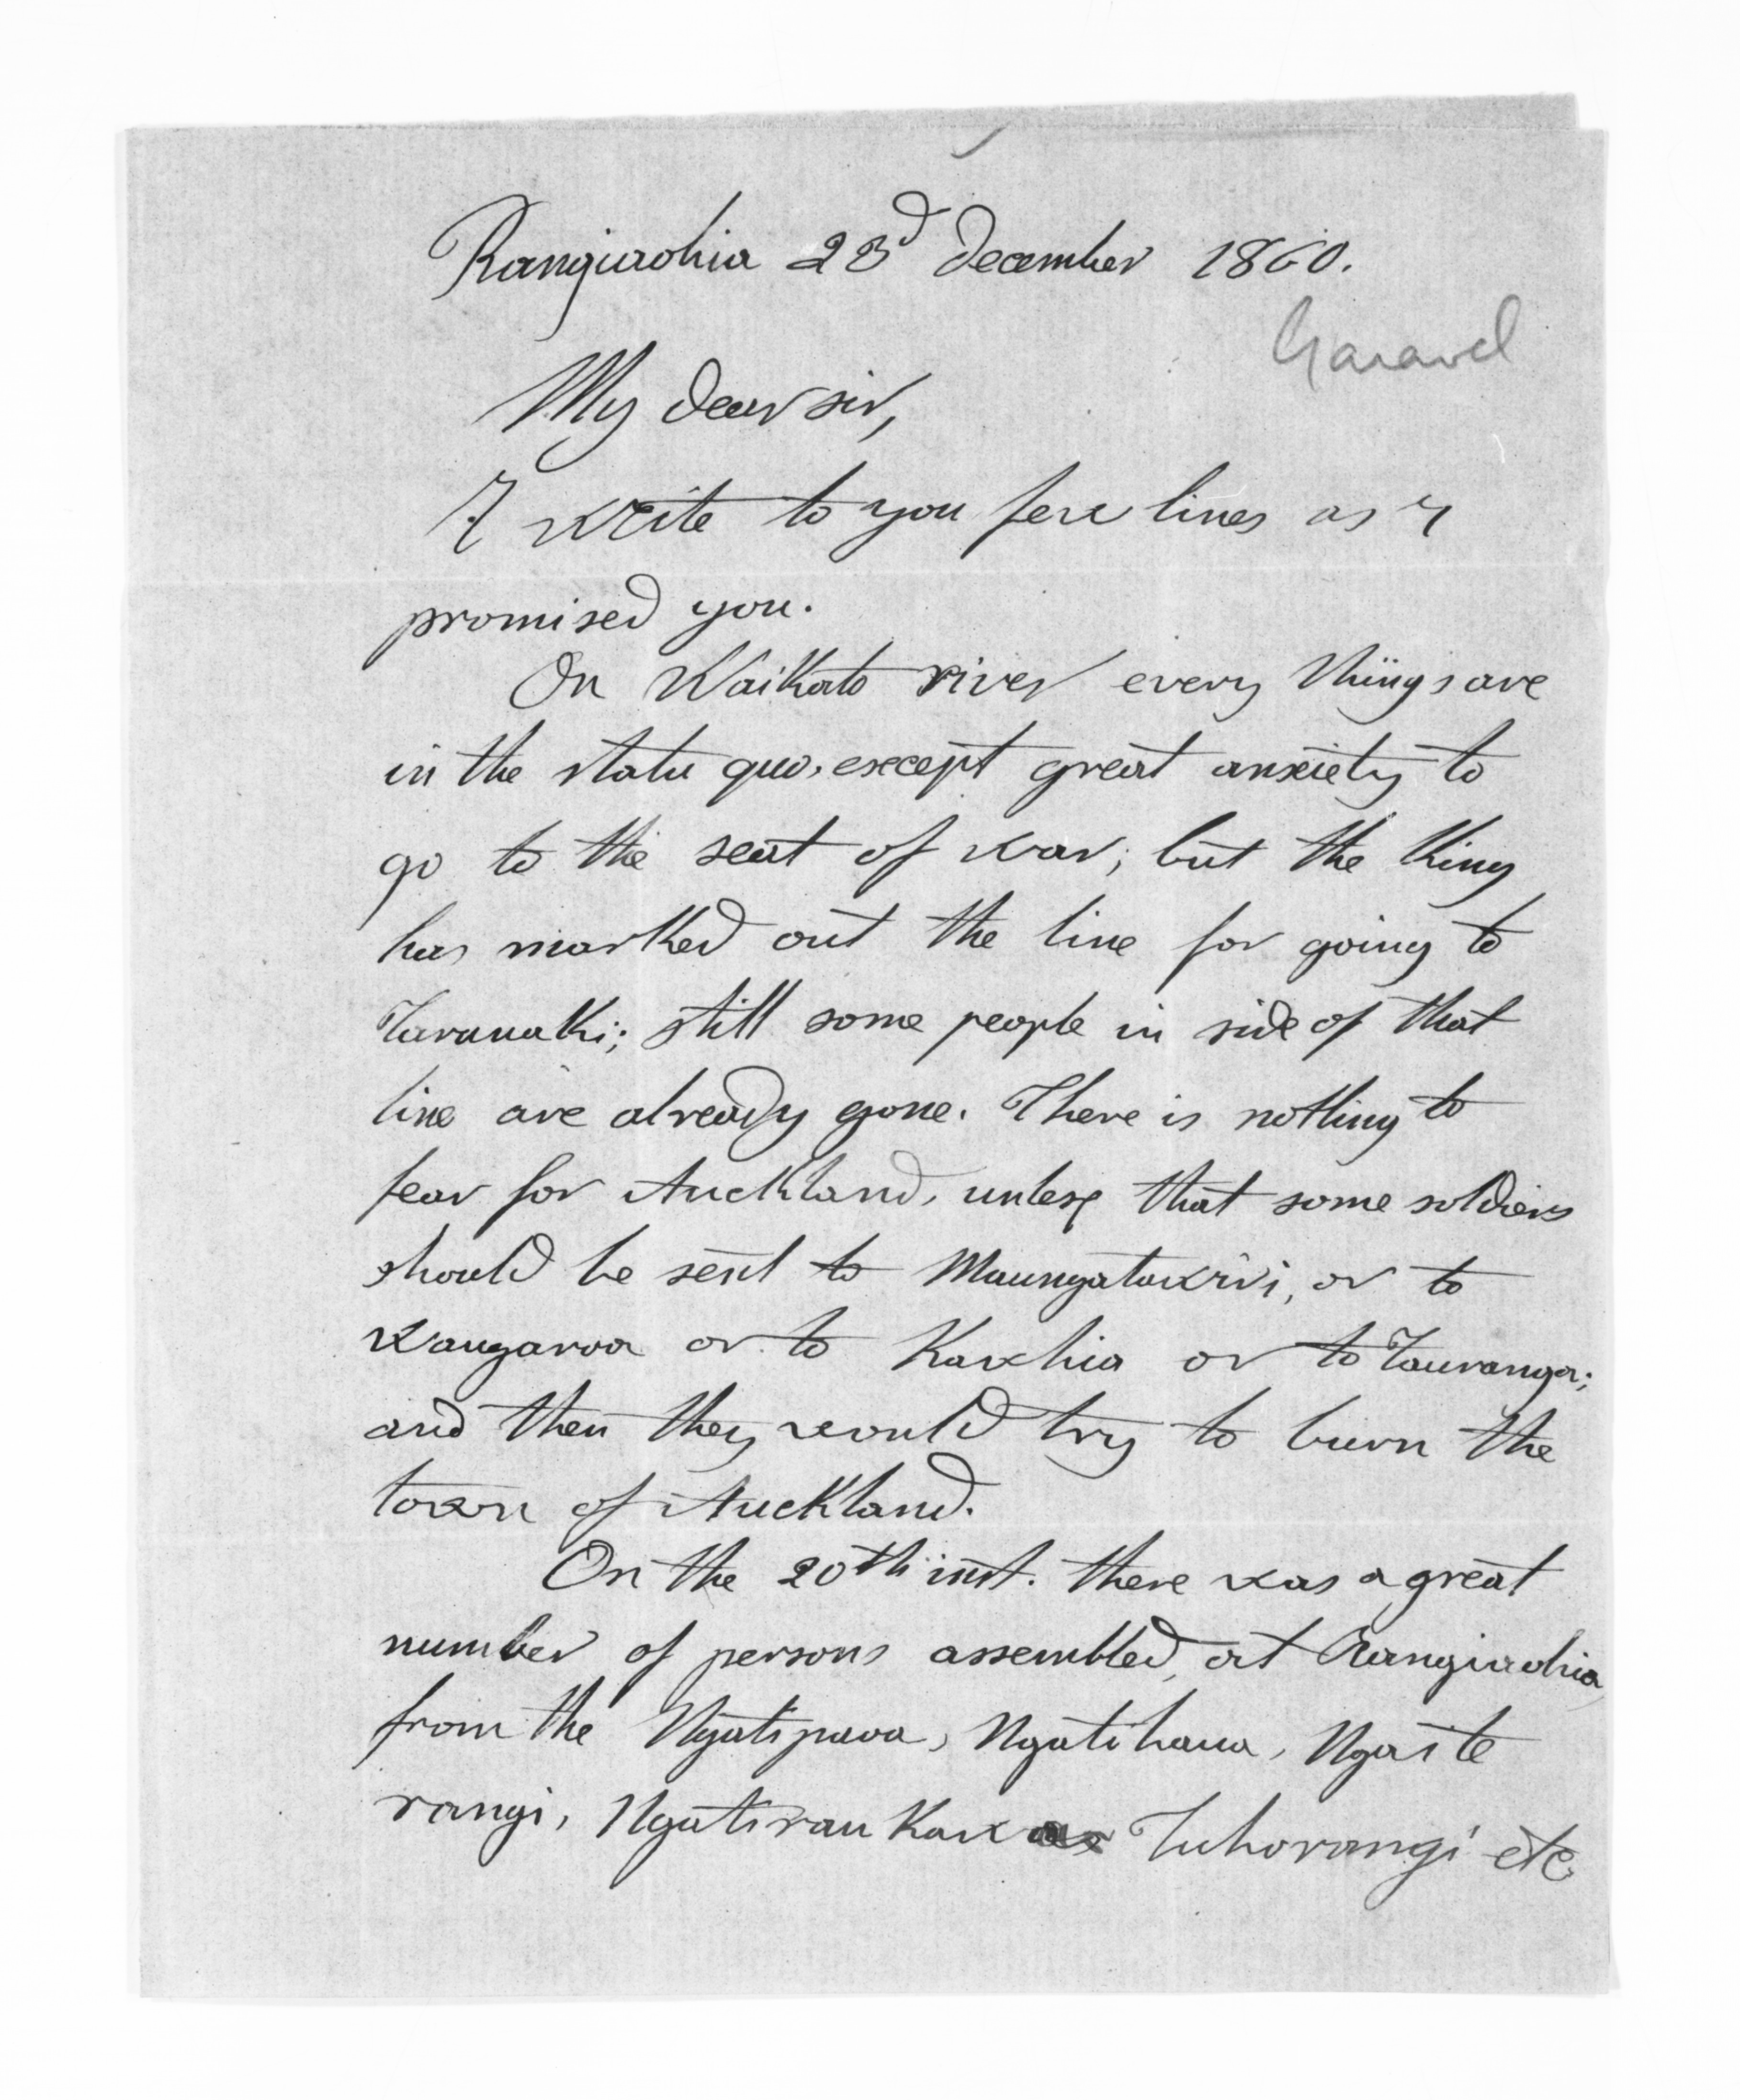 Rangiaohia 23d December 1860.
Garavel
My dear sir,
I write to you few lines as I
promised you.
On Waikato river every things are
in the statu quo, except great anxiety to
go to the seat of war; but the King
has marked out the line for going to
Taranaki; still some people in side of that
line are already gone. There is nothing to
fear for Auckland, unless that some soldiers
should be sent to Maungatawiri, or to
Wangaroa or to Kawhia or to Tauranga;
and then they would try to burn the
town of Auckland.
On the 20th inst. there was a great
number of persons assembled, at Rangiaohia,
from the Ngatipaoa, Ngatihaua, Ngaite
rangi, Ngatiraukawa Tuhorangi etc